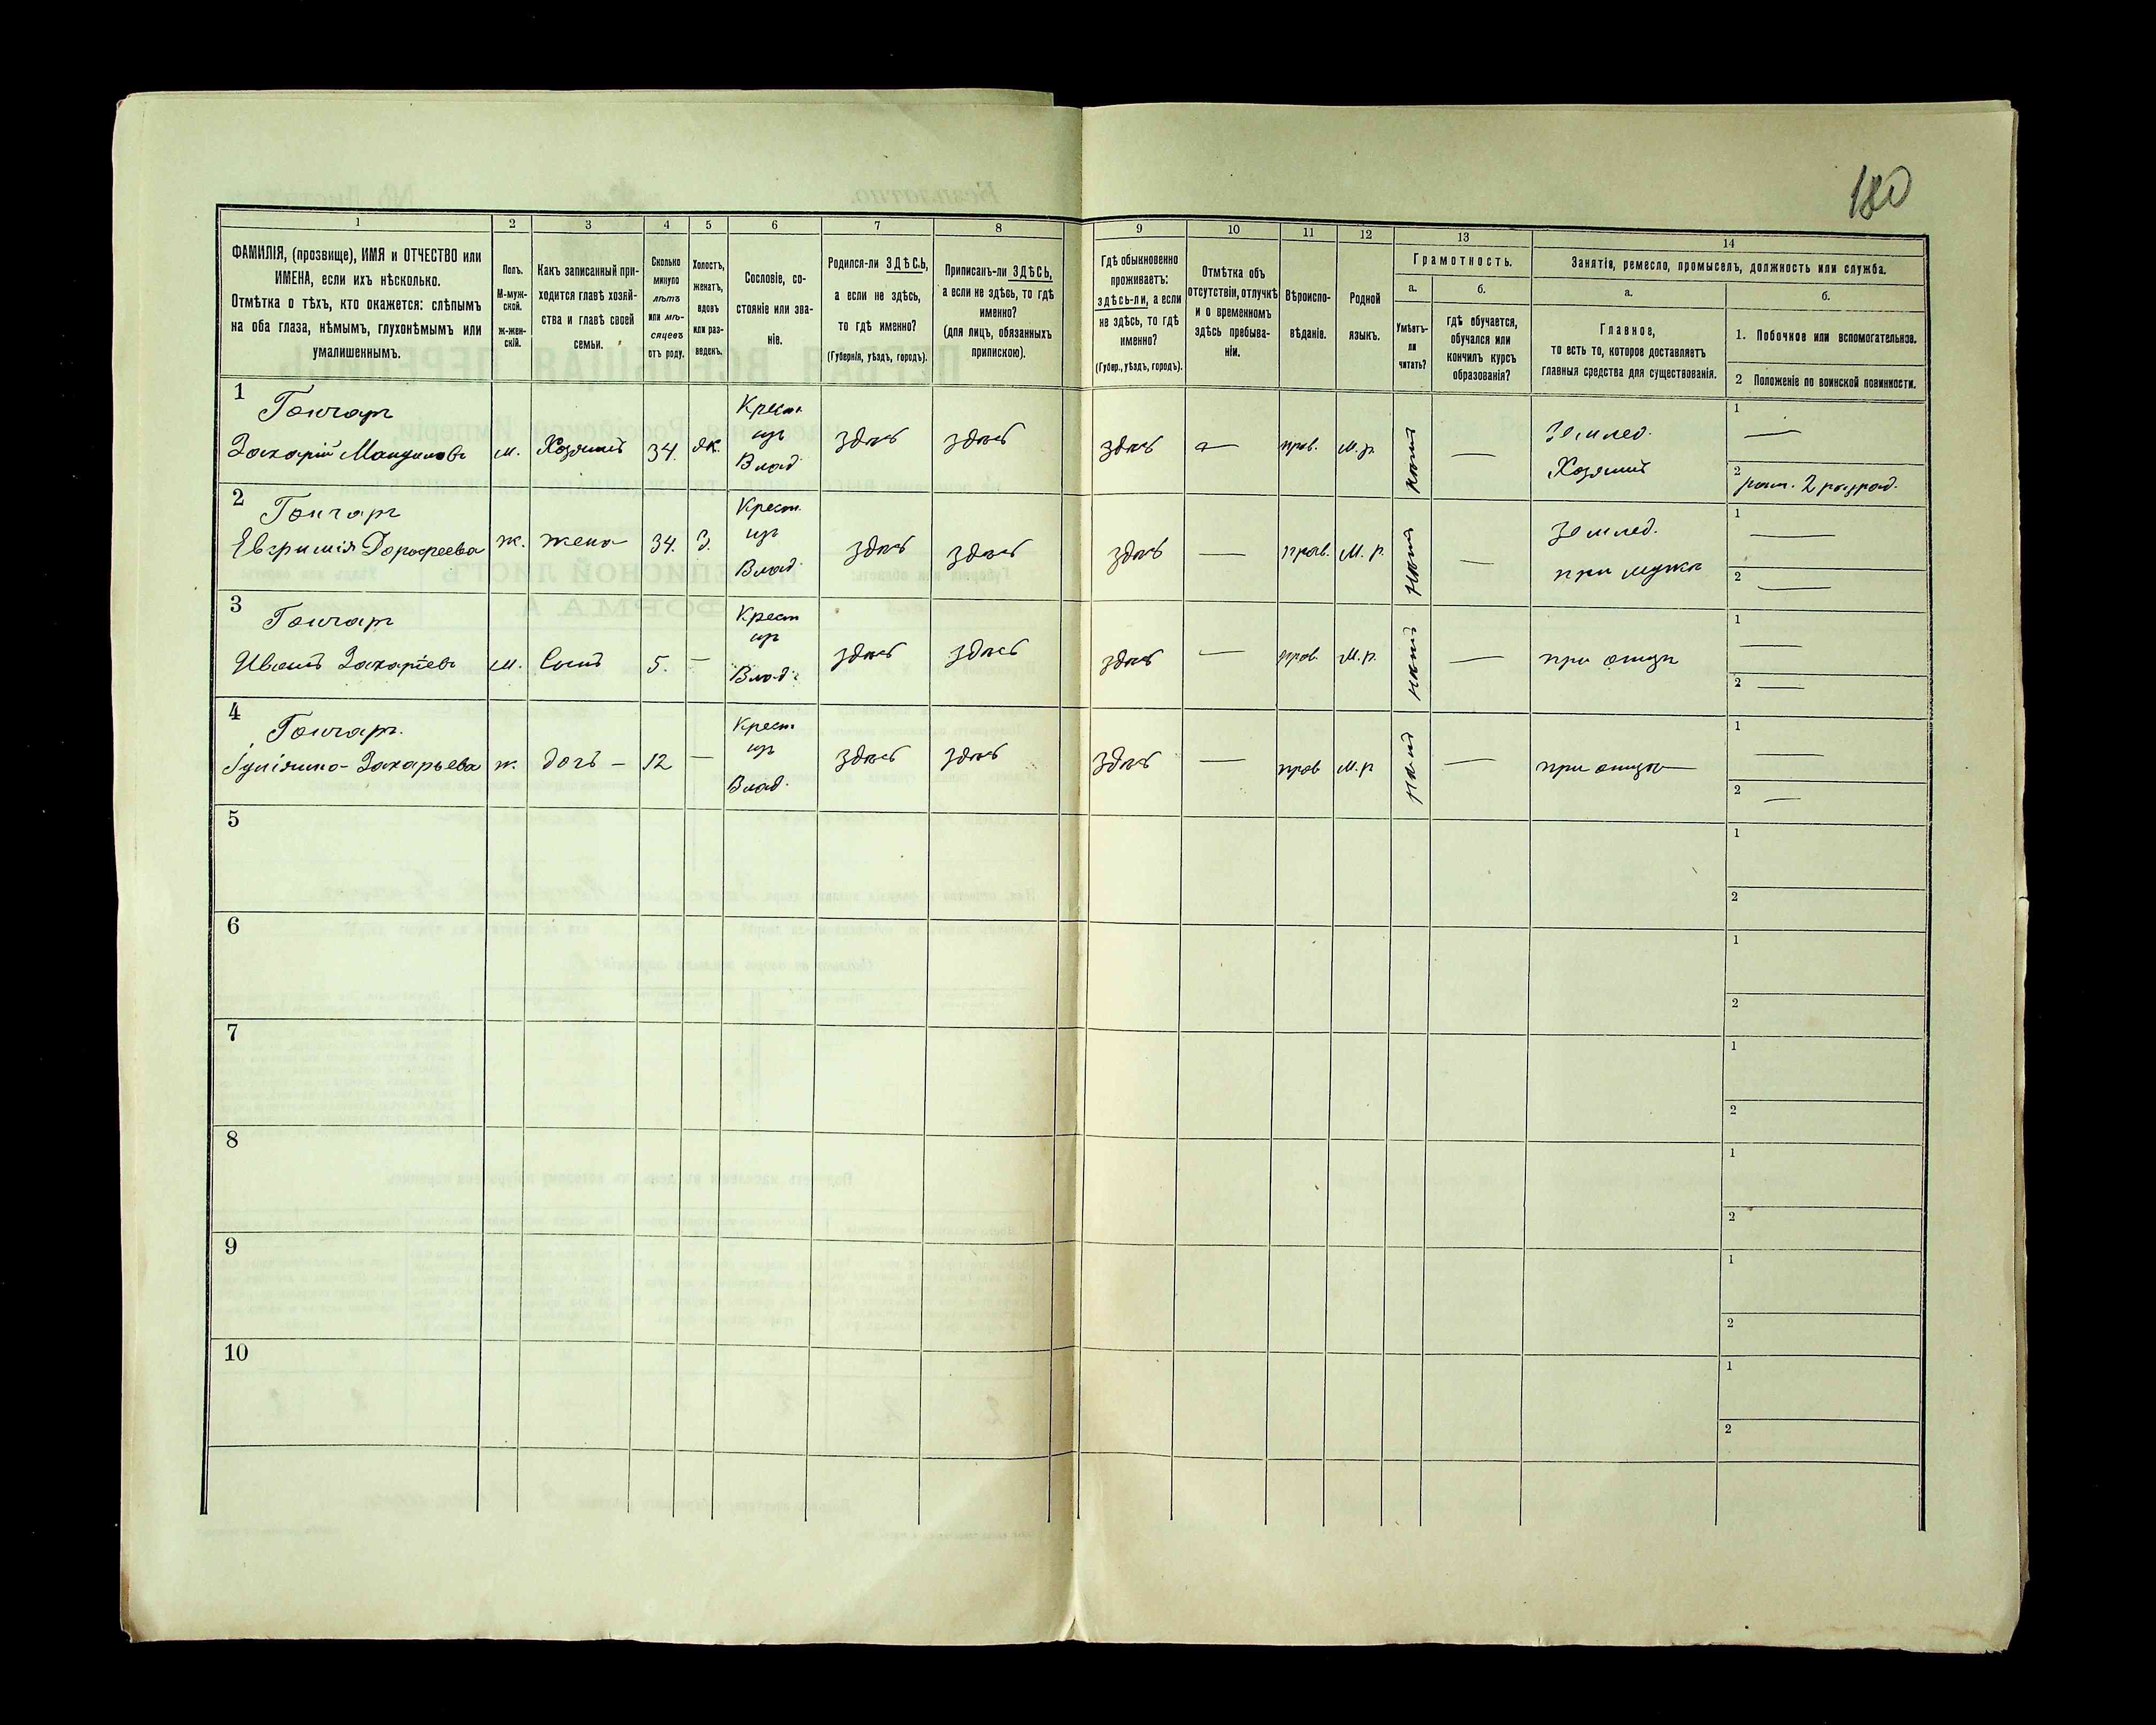 180
1
2
3
4
5
6
7
8
9
10
11
12
13
14
ФАМИЛІЯ, (прозвище), ИМЯ и ОТЧЕСТВО или
ИМЕНА, если ихъ нѣсколько.
Отмѣтка о тѣхъ, кто окажется: слѣпымъ
на оба глаза, нѣмымъ, глухонѣмымъ или
умалишеннымъ.
Полъ.
М-муж-
ской.
ж-жен-
скій.
Какъ записанный при-
ходится главѣ хозяй-
ства и главѣ своей
семьи.
Сколько
минуло
лѣтъ
или мѣ-
сяцевъ
отъ роду.
Холостъ,
женатъ,
вдовъ
или раз-
веденъ.
Сословіе, со-
стояніе или зва-
ніе.
Родился-ли ЗДѢСЬ,
а если не здѣсь,
то гдѣ именно?
(Губернія, уѣздъ, городъ).
Приписанъ-ли ЗДѢСЬ,
а если не здѣсь, то гдѣ
именно?
(для лицъ, обязанныхъ
припискою).
Гдѣ обыкновенно
проживаетъ:
здѣсь-ли, а если
не здѣсь, то гдѣ
именно?
(Губер., уѣздъ, городъ).
Отмѣтка объ
отсутствіи, отлучкѣ
и о временномъ
здѣсь пребыва-
ніи.
Вѣроиспо-
вѣданіе.
Родной
языкъ.
Грамотность.
а.
Умѣетъ-
ли
читать?
б.
гдѣ обучается,
обучался или
кончилъ курсъ
образованія?
Занятія, ремесло, промыселъ, должность или служба.
а.
Главное,
то есть то, которое доставляетъ
главныя средства для существованія.
б.
1. Побочное или вспомогательное.
2 Положеніе по воинской повинности.
1
Гончаръ
Захарій
м. Хозяинъ 34. Ж.
Крест.
изъ
Влад.
здѣсь здѣсь здѣсь — прав. М.р. нѣтъ —
Землед.
Хозяинъ
1 —
2 ратн. 2 разряд.
2
Гончаръ
Евфимія Дорофеева
ж. жена 34. З.
Крест.
изъ
Влад.
здѣсь здѣсь здѣсь — прав. М. р. нѣтъ —
Землед.
при мужѣ
1 —
2 —
3
Гончаръ
Иванъ Захаріевъ
м. Сынъ 5. —
Крест
изъ
Влад.
здѣсь здѣсь здѣсь — прав. М.р. нѣтъ —
при отцѣ
1 —
2 —
4
Гончаръ.
Іуліяна Захарьева
ж. дочь — 12 —
Крест.
изъ
Влад.
здѣсь здѣсь здѣсь — прав М.р нѣтъ —
при отцѣ —
1 —
2 —
5
1
2
6
1
2
7
1
2
8
1
2
9
1
2
10
1
2